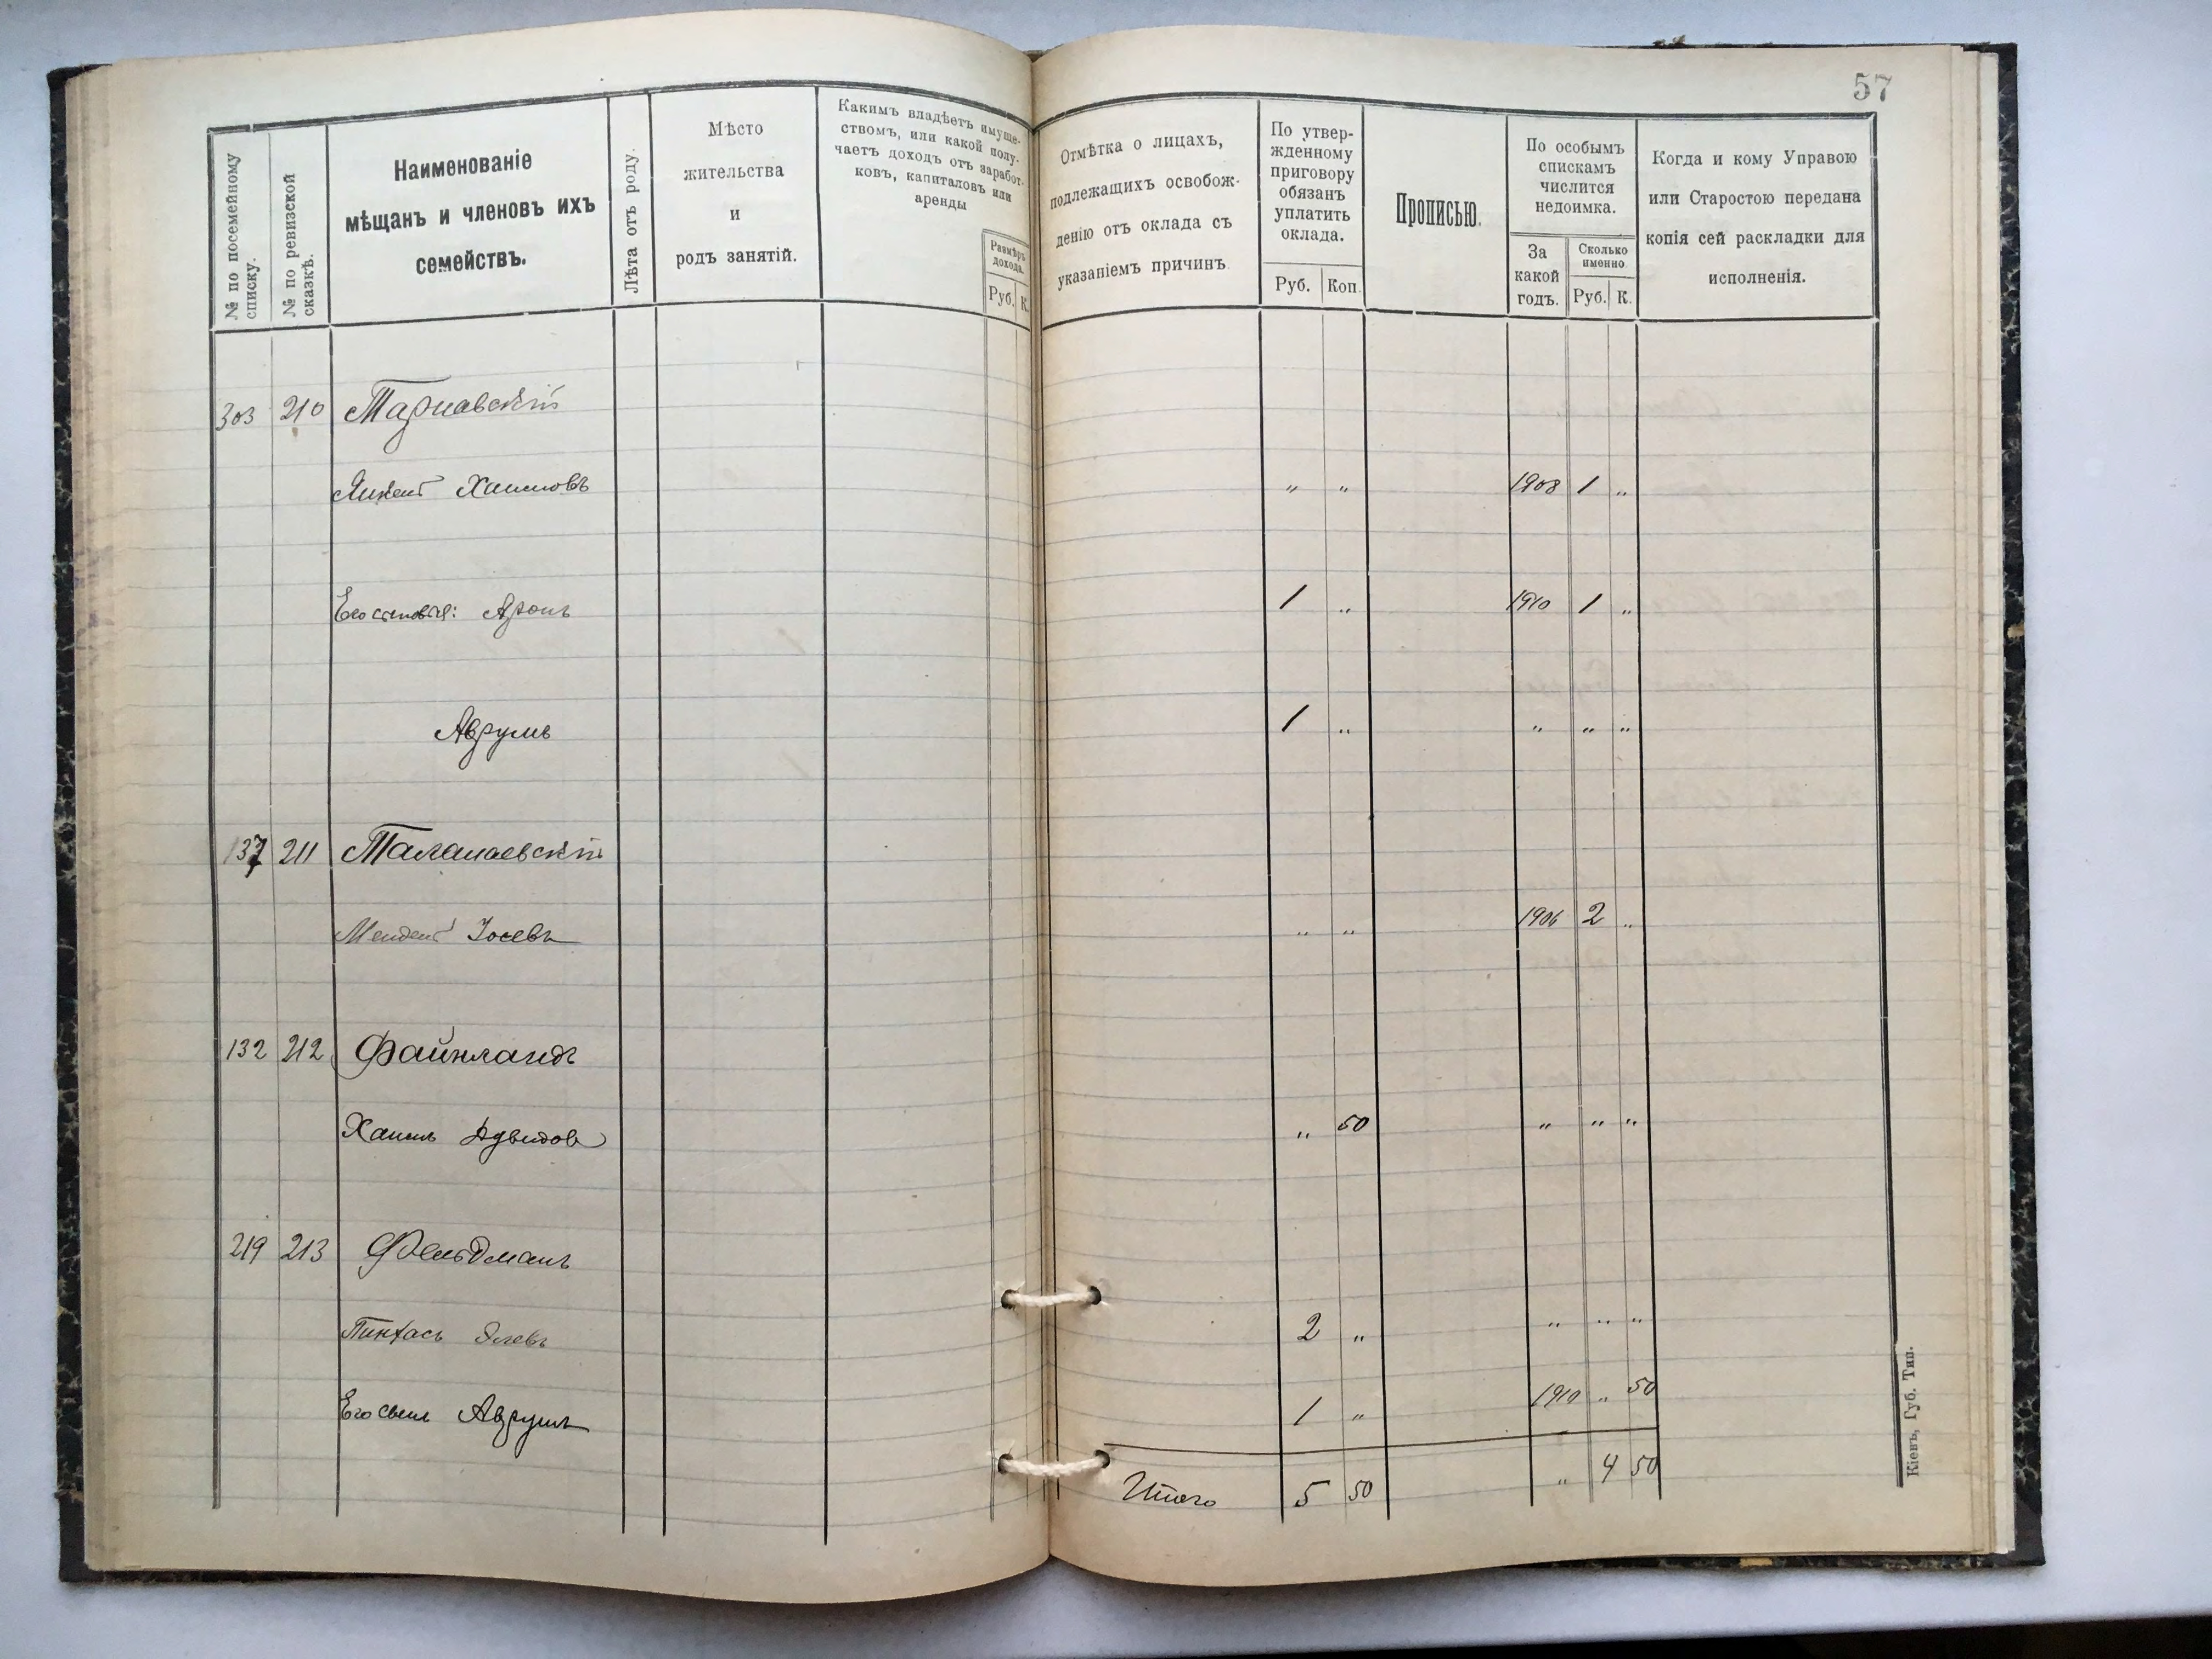 57
№ по посемейному
списку.
№ по ревизской
сказкѣ.
Наименованіе
мѣщанъ и членовъ ихъ
семействъ.
Лѣта отъ роду.
Мѣсто
жительства
и
родъ занятій.
Какимъ владѣетъ имуще-
ствомъ, или какой полу-
чаетъ доходъ отъ заработ-
ковъ, капиталовъ или
аренды
Размѣръ
дохода.
Руб. К.
Отмѣтка о лицахъ,
подлежащихъ освобож-
денію отъ оклада съ
указаніемъ причинъ
По утвер-
жденному
приговору
обязанъ
уплатить
оклада.
Руб. Коп.
Прописью.
По особымъ
спискамъ
числится
недоимка.
За
какой
годъ.
Сколько
именно
Руб. К.
Когда и кому Управою
или Старостою передана
копія сей раскладки для
исполненія.
303 210 Тарнавскій
Янкель Хаимовъ „ „ 1908 1 „
Его сыновья: Аронъ 1 „ 1910 1 „
Аврумъ 1 „ „ „ „
137 211 Талалаевскій
Мендель Іосевъ „ „ 1906 2 „
132 212 Файнландъ
Хаимъ Давидовъ „ 50 „ „ „
219 213 Фельдманъ
Пинхасъ 2 „ „ „ „
Его сынъ Аврумъ 1 „ 1910 „ 50
Итого 5 50 „ 4 50
Кіевъ, Губ. Тип.